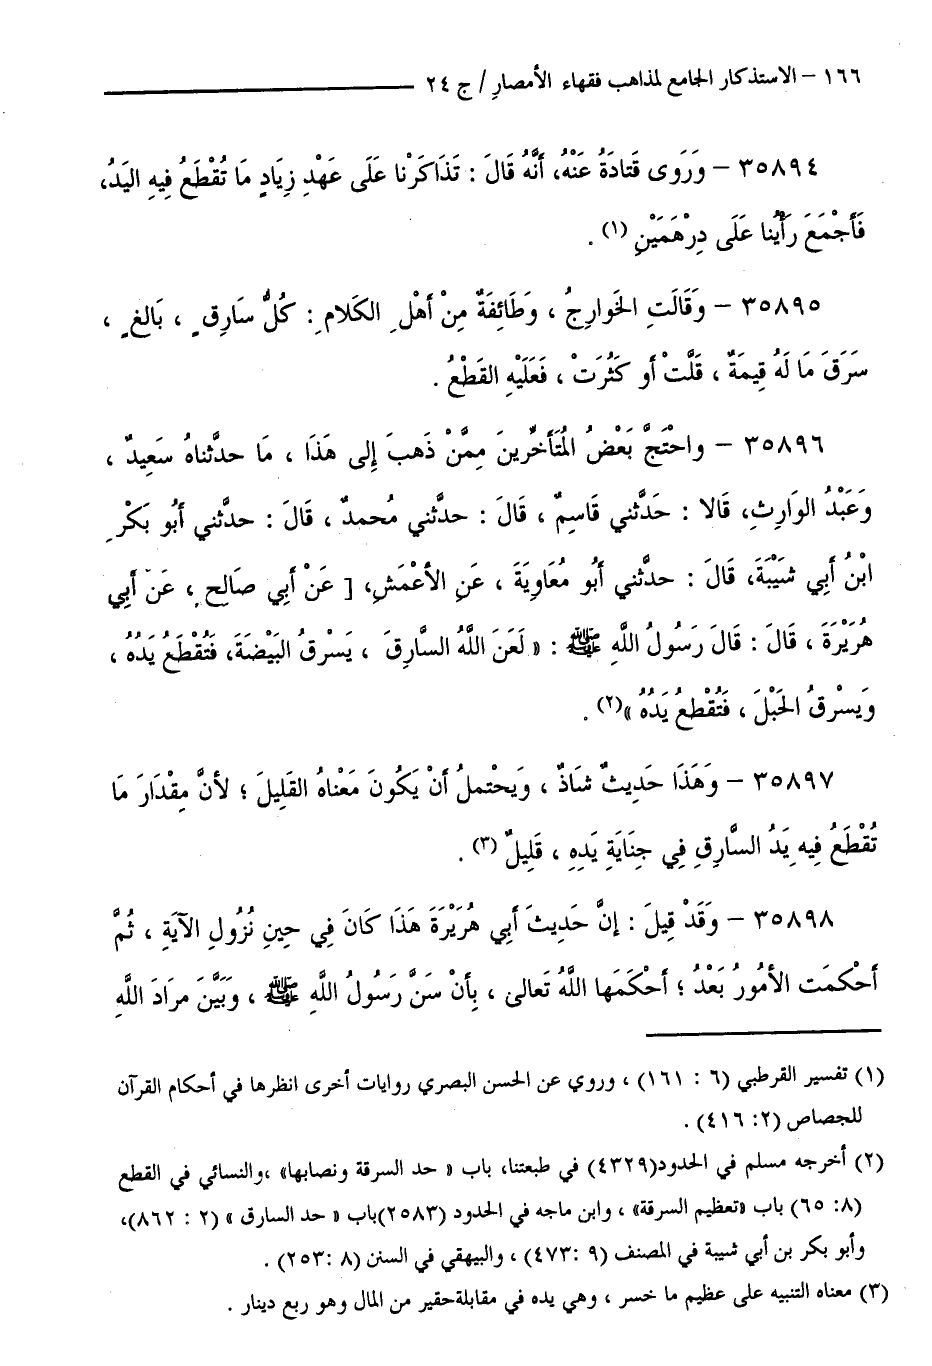 ١٦٦ – الاستذكار الجامع لمذاهب فقهاء الأمصار / ج ٢٤
٣٥٨٩٤ – وَرَوَى قَتَادَةُ عَنْهُ، أَنَّهُ قَالَ : تَذَاكَرْنا عَلَى عَهْدِ زِيَادٍ مَا تُقْطَعُ فِيهِ اليَدُ،
فَأَجْمَعَ رَأَيُنا عَلَى دِرْهَمَيْنِ (١) .
٣٥٨٩٥ – وَقَالَتِ الخَوارِجُ ، وَطَائِفَةٌ مِنْ أَهْلِ الكَلامِ : كُلُّ سَارِقٍ ، بَالغٍ ،
سَرَقَ مَا لَهُ قِيمَةٌ ، قَلَّتْ أو كَثُرَتْ ، فَعَلَيْهِ القَطْعُ .
٣٥٨٩٦ – واحْتَجَّ بَعْضُ المُتَأَخِّرينَ مِمَّنْ ذَهبَ إِلى هَذَا ، مَا حدَّثناهُ سَعِيدٌ ،
وَعَبْدُ الوَارِثِ، قَالا : حَدَّثني قَاسِمٌ ، قَالَ : حدَّثني مُحمدٌ ، قَالَ : حدَّثني أَبُو بَكْرِ
ابْنُ أَبِي شَيْبَةَ، قَالَ : حدَّثني أَبُو مُعَاوِيَةَ ، عَنِ الأَعْمَشِ، [ عَنْ أَبِي صَالِحٍ ، عَنْ أَبِي
هُرَيْرَةَ ، قَالَ : قَالَ رَسُولُ اللَّهِ ﷺ : « لَعَنَ اللَّهُ السَّارِقَ ، يَسْرِقُ البَيْضَةَ، فَتُقْطَعُ يَدُهُ ،
وَيَسْرِقُ الحَبْلَ ، فَتُقْطعُ يَدُهُ »(٢) .
٣٥٨٩٧ – وَهَذَا حَدِيثٌ شَاذٌ ، وَيَحْتملُ أَنْ يَكُونَ مَعْناهُ القَلِيلَ ؛ لأنَّ مِقْدَارَ مَا
تُقْطَعُ فِيه يَدُ السَّارِقِ فِي جِنَايَةِ يَدِهِ ، قَلِيلٌ (٣) .
٣٥٨٩٨ – وَقَدْ قِيلَ : إنَّ حَدِيثَ أَبِي هُرَيْرَةَ هَذَا كَانَ فِي حِينِ نُزُولِ الآيَةِ ، ثُمَّ
أَحْكمَت الأمُورُ بَعْدُ ؛ أَحْكَمَها اللَّهُ تَعالى ، بِأَنْ سَنَّ رَسُولُ اللَّهِ ﷺ ، وَبَيَّنَ مرَادَ اللَّهِ
(١) تفسير القرطبي (٦ : ١٦١) ، وروي عن الحسن البصري روايات أخرى انظرها في أحكام القرآن
للجصاص (٢: ٤١٦) .
(٢) أخرجه مسلم في الحدود(٤٣٢٩) في طبعتنا، باب « حد السرقة ونصابها» ،والنسائي في القطع
(٨: ٦٥) باب «تعظيم السرقة» ، وابن ماجه في الحدود (٢٥٨٣)باب « حد السارق » (٢ : ٨٦٢)،
وأبو بكر بن أبي شيبة في المصنف (٩ :٤٧٣) ، والبيهقي في السنن (٨ :٢٥٣) .
(٣) معناه التنبيه على عظيم ما خسر ، وهي يده في مقابلةحقير من المال وهو ربع دينار .